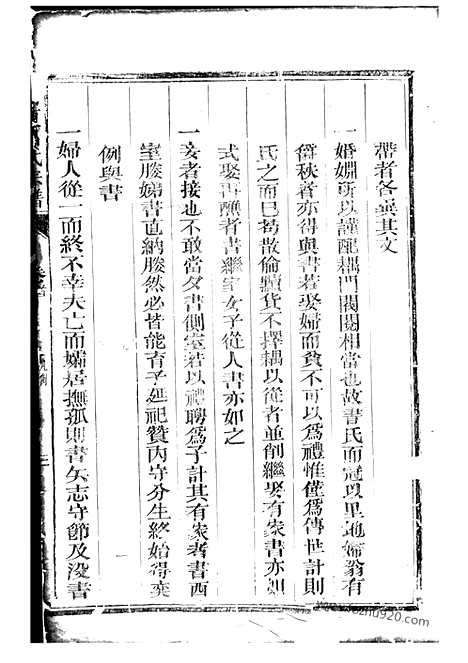 帶者各錄其文
一婚姻所以謹配耦門閥閱相當也故書氏而冠以里地婦翁有
爵秩者亦得與書若娶婦而貧不可以為禮惟僅為傳世計則
氏之而已茍敗倫黷貨不擇耦以從者並削繼娶有家書亦如
式娶再醮者書繼室女子從人書亦如之
一妾者接也不敢當夕書側室若以禮聘為子計其有家者書西
室媵娣書直納媵然必皆能育子延祀贊內守分生終始得葬
例與書
一婦人從一而終不幸夫亡而孀居撫孤則書矢志守節及沒書